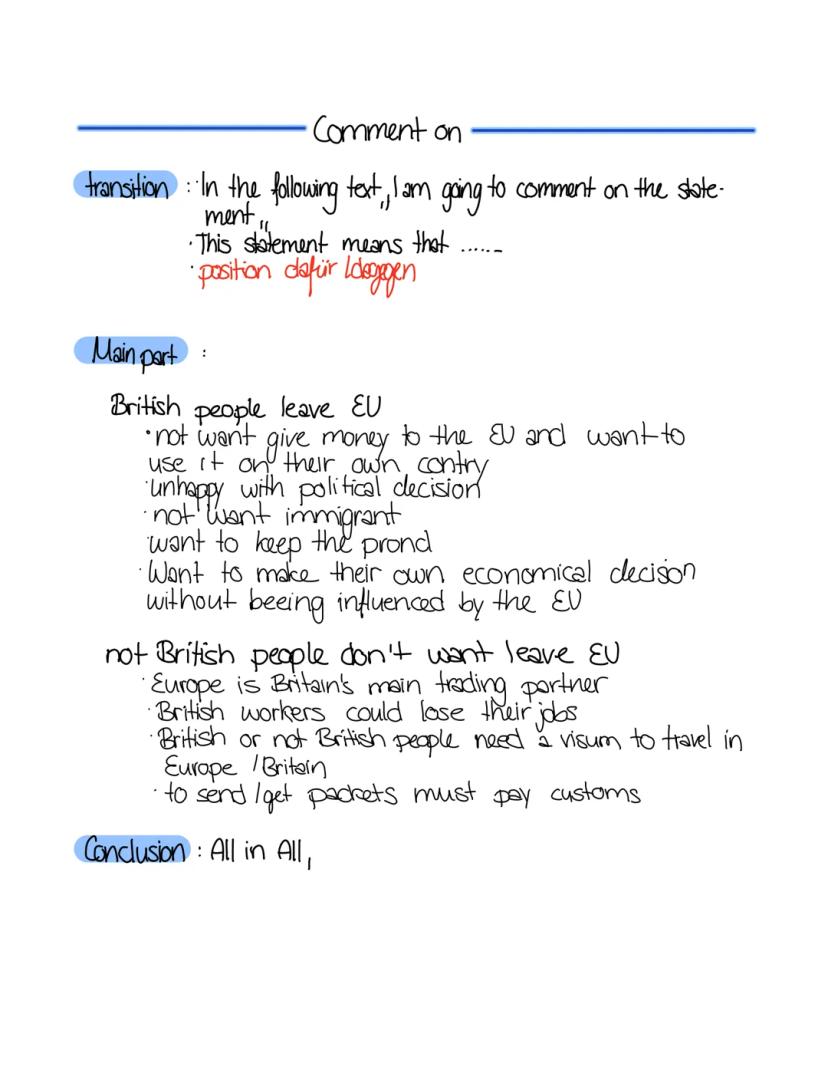 Comment on
transition : · In the following text, I am going to comment on the state-
ment „
· This statement means that ......
· position dafür / dagegen
Main part :
British people leave EU
· not want give money to the EU and want to
use it on their own contry
· unhappy with political decision
· not want immigrant
want to keep the prond
· Want to make their own economical decison
without beeing influenced by the EU
not British people don't want leave EU
· Europe is Britain's main trading partner
· British workers could lose their jobs
· British or not British people need a visum to travel in
Europe / Britain
· to send / get packets must pay customs
Conclusion : All in All,